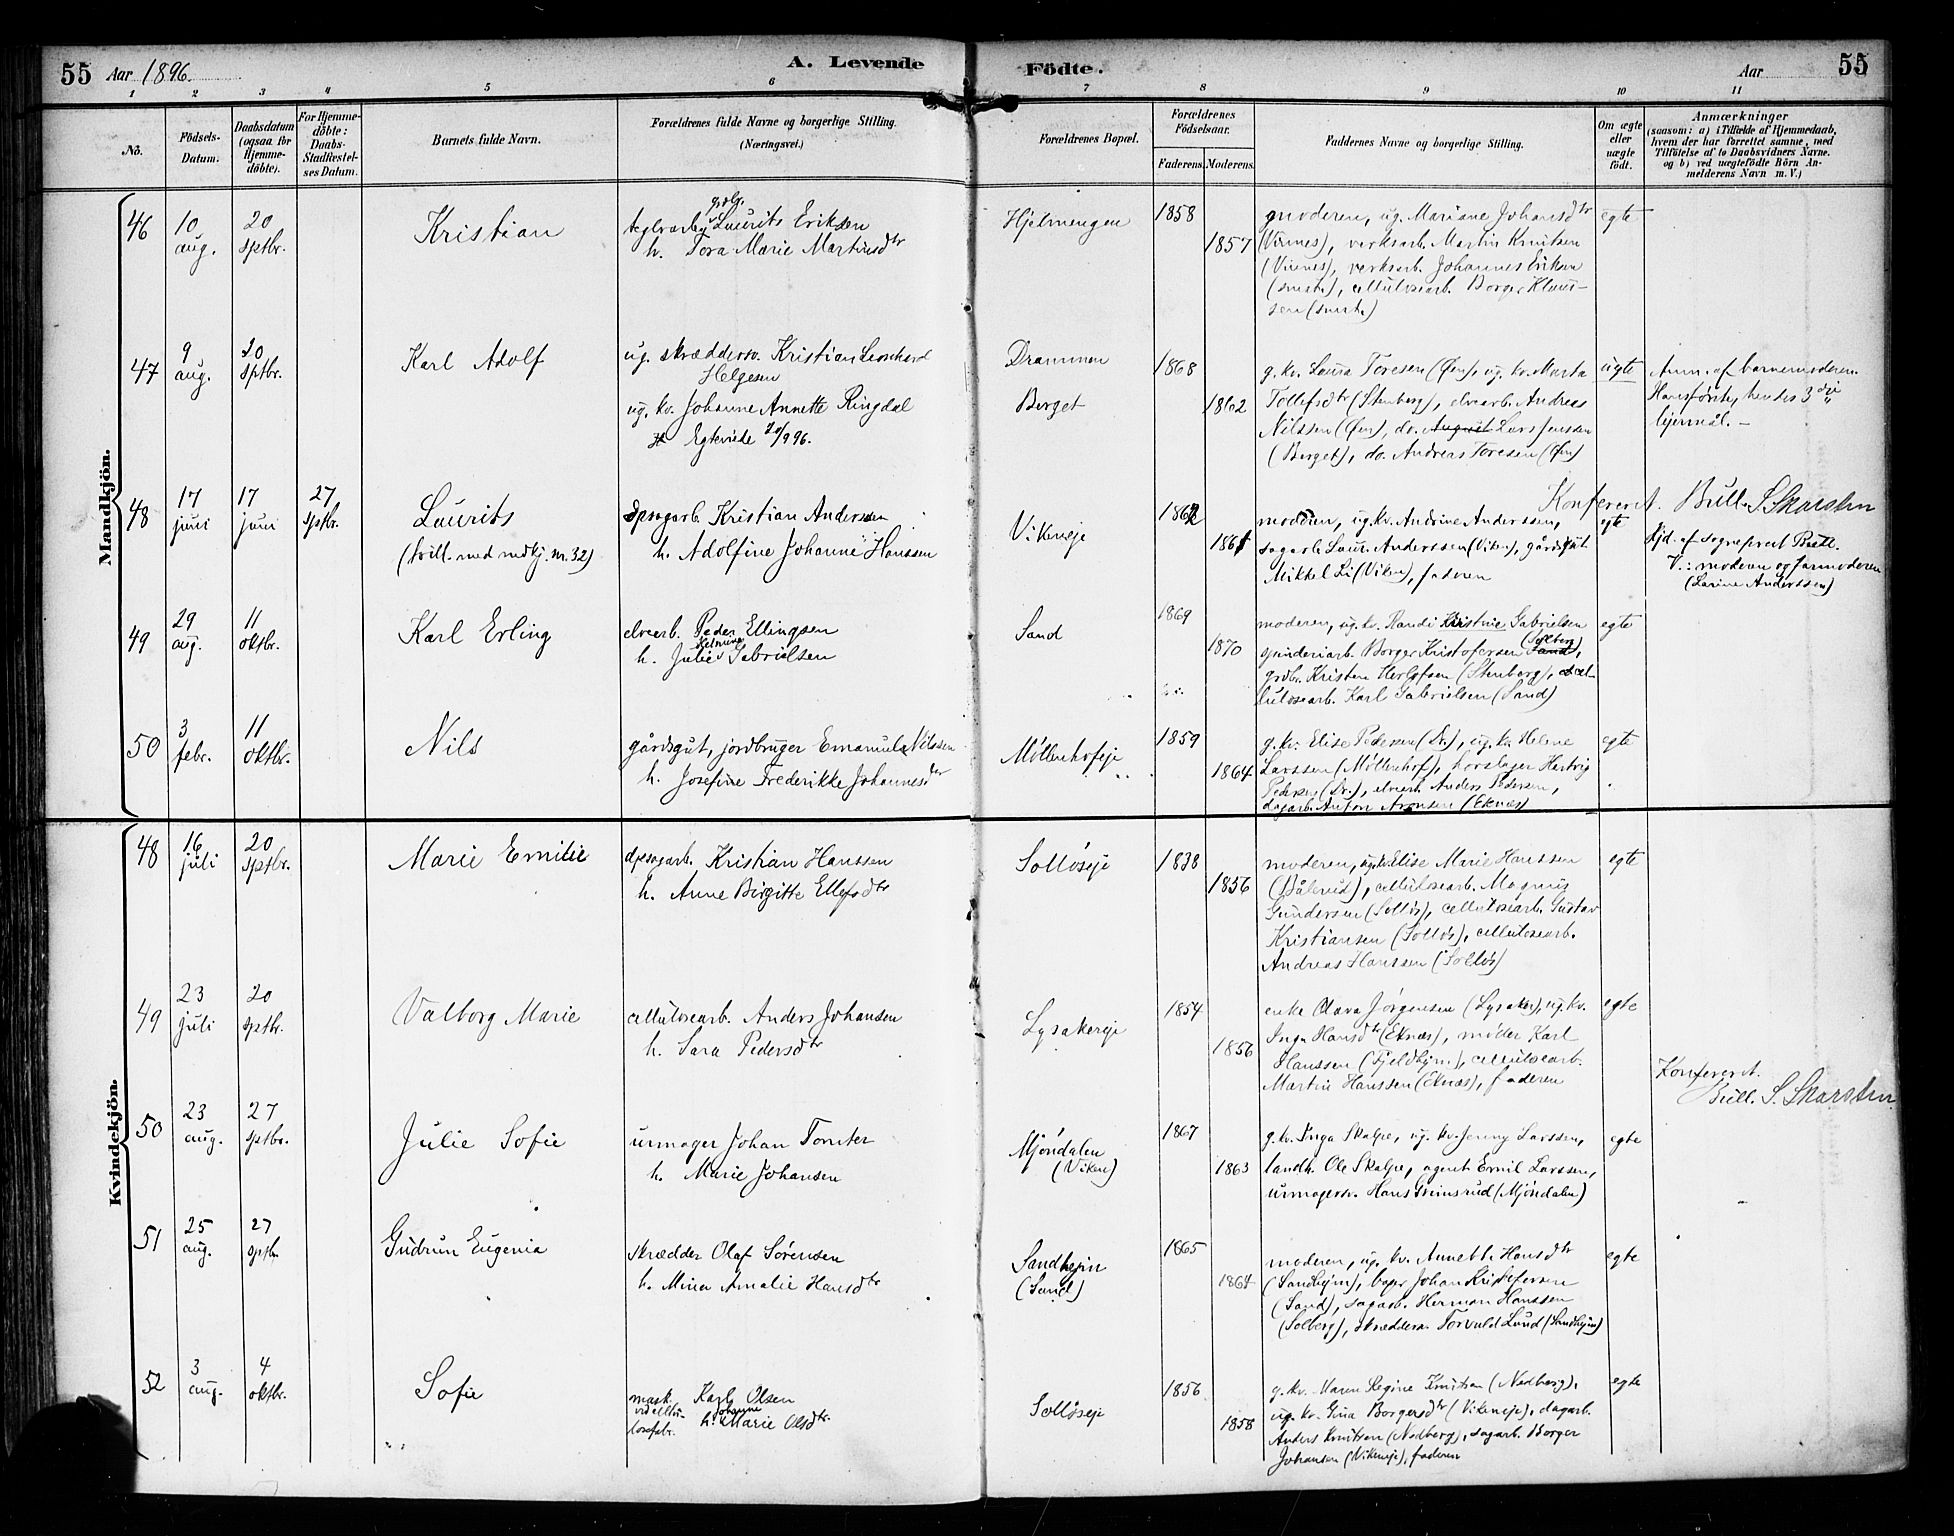 55 Aar 1896. A. Levende Födte. Aar 55
1 2 3 4 5 6 7 8 9 10 11
No.
Födsels-
Datum.
Daabsdatum
(ogsaa for
Hjemme-
döbte).
For Hjemme-
döbte:
Daabs-
Stadfæstel-
ses Datum.
Barnets fulde Navn.
Forældrenes fulde Navne og borgerlige Stilling.
(Næringsvei.)
Forældrenes Bopæl.
Forældrenes
Födselsaar.
Faderens. Moderens.
Faddernes Navne og borgerlige Stilling.
Om ægte
eller
uægte
födt.
Anmærkninger
(saasom: a) i Tilfælde af Hjemmedaab,
hvem der har forrettet samme, med
Tilföielse af to Daabsvidners Navne.
og b) ved uægtefödte Börn An-
melderens Navn m. V.)
Mandkjön.
46
10
aug.
20
sptbr.
Kristian
teglverksarb. Laurits Eriksen
h. Tora Marie Martinsdtr
Hjelmengen
1858
1857
moderen, ug. Mariane Johansdtr
(Virnes), verksarb. Martin Knutsen
(Virnes), verksarb. Johannes Eriksen
cellulosearb. Borger Klaus-
sen
egte
47
9
aug.
20
sptbr.
Karl Adolf
ug. skræddersv. Kristian Leonhard
Helgesen
ug. kv. Johanne Annette Ringdal
Egteviede 20/9 96.
Drammen
Berget
1868
1862
g. kv. Laura Toresen (Øen), ug. kv. Marta
Tollefsdtr (Stenberg), elvearb. Andreas
Nilssen (Øen), do. August Lars Jensen
(Berget), do. Andreas Toresen (Øen)
uegte
Anm. af barnemoderen.
Hans første, hendes 3die
lejermål. —
48
17
juni
17
juni
27
sptbr.
Laurits
(tvill. med mdkj. nr. 32)
dpsagarb. Kristian Anderssen
h. Adolfine Johanne Hanssen
Vikeneje
1862
1861
moderen, ug. kv. Andrine Anderssen,
sagarb. Laur. Anderssen (Viken), gårdsgut
Mikkel Li (Viken), faderen
egte
Konfereret. Bull. S. Skarsten
Hjd. af sogneprest Bull.
V.: moderen og farmoderen
(Larine Anderssen)
49
29
aug.
11
oktbr.
Karl Erling
elvearb. Peder Ellingsen
h. Julie Gabrielsen
Sand
1869
1870
moderen, ug. kv. Randi Kristine Gabrielsen
(Solberg)
Borger Kristofersen Sand),
grdbr. Kristen Herlofsen (Stenberg), cel-
lulosearb. Karl Gabrielsen (Sand)
egte
50
3
febr.
11
oktbr.
Nils
gårdsgut, jordbruger Emanuel Nilssen
h. Josefine Frederikke Johannesdtr
Møllenhofeje
1859
1864
g. kv. Elise Pedersen (Dr.), ug. kv. Helene
Larssen (Møllenhof), horslager Hartvig
Pedersen (Dr.), elvearb. Anders Pedersen,
dagarb. Anton Aronsen (Eknæs)
egte
Kvindekjön.
48
16
juli
20
sptbr.
Marie Emilie
dpsagarb. Kristian Hanssen
h. Anne Birgitte Ellefsdtr
Solløseje
1838
1856
moderen, ug. kv. Elise Marie Hanssen
(Bålerud), cellulosearb. Magnus
Gundersen (Solløs), cellulosearb. Gustav
Kristiansen (Solløs), cellulosearb.
Andreas Hanssen (Solløs)
egte
49
23
juli
20
sptbr.
Valborg Marie
cellulosearb. Anders Johansen
h. Sara Pedersdtr
Lysakereje
1854
1856
enke Olava Jørgensen (Lysaker), ug. kv.
Inga Hansdtr (Eknæs), møller Karl
Hanssen (Fjeldhjm.), cellulosearb.
Martin Hanssen (Eknæs), faderen
egte
Konfereret.
Bull. S. Skarsten
50
23
aug.
27
sptbr.
Julie Sofie
urmager Johan Tomter
h. Marie Johansen
Mjøndalen
(Viken)
1867
1863
g. kv. Inga Skalpe, ug. kv. Jenny Larssen,
landh. Ole Skalpe, agent Emil Larssen,
urmagersv. Hans Grimsrud (Mjøndalen)
egte
51
25
aug.
27
sptbr.
Gudrun Eugenia
skrædder Olaf Sörensen
h. Mina Amalie Hansdtr
Sandhejm
(Sand)
1865
1864
moderen, ug. kv. Annette Hansdtr
(Sandhejm), bager Johan Kristofersen
(Sand), sagarb. Herman Hanssen
(Solberg), skræddersv. Torvald Lund (Sandhejm)
egte
52
3
aug.
4
oktbr.
Sofie
mask.
ved cellu-
losefabr.
Karl Olsen
h. Johanne Marie Olsdtr.
Solløseje
1856
1858
g. kv. Maren Regine Knutsen (Nedberg),
ug. kv. Gina Borgersdtr (Vikeneje), dagarb.
Anders Knutsen (Nedberg), sagarb. Borger
Johansen (Vikeneje), faderen
egte